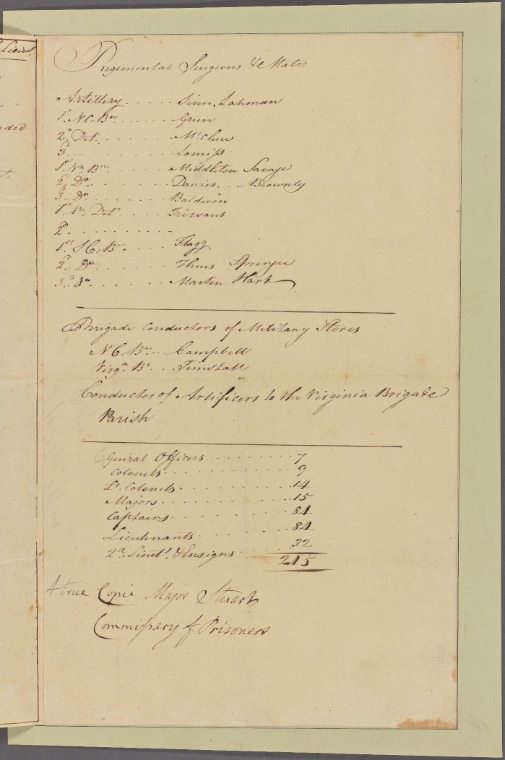 Regimental Surgeons & Mates
Artillery Sinn, Lohman
1st N.C. Bn Green
2d Det. McClure
3 Lomiss
1st Va Bn Middleton Savage
2 Do Davies Brownly
3 Do Baldwin
1st Va Det Trezvant
2d
1st S.C. Bn Flagg
2d Do Thews Springer
3d Do Martin Hart
Brigade Conductors of Military Stores
N.C. Be Campbell
Virga Be Timstall
Conductor of Artificers to the Virginia Brigade
Parish
General Officers 7
Colonels 9
Lt Colonels 14
Majors 15
Captains 84
Lieutenants 84
2d Lieuts & Ensigns 32
245
A true Copie Major Stuart
Commissary of Prisoners